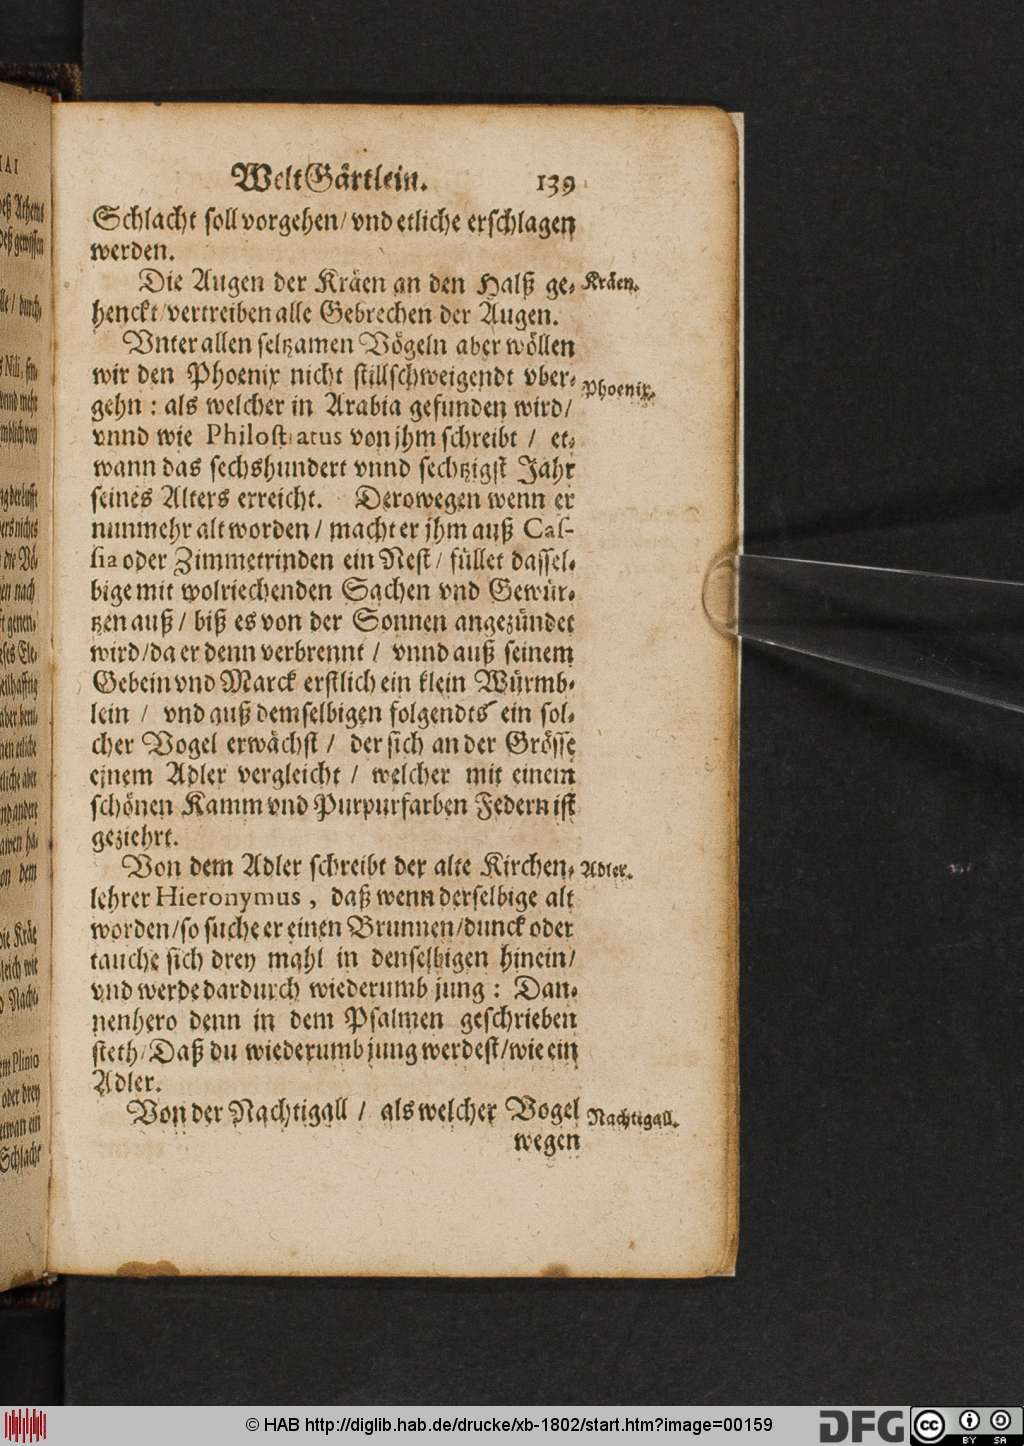 WeltGärtlein. 139
Schlacht soll vorgehen/ vnd etliche erschlagen
werden.
Die Augen der Kräen an den Halß ge-
Kräen.
henckt/ vertreiben alle Gebrechen der Augen.
Vnter allen seltzamen Vögeln aber wöllen
wir den Phoenix nicht stillschweigendt vber-
Phoenix.
gehn : als welcher in Arabia gefunden wird/
vnnd wie Philostratus von jhm schreibt / et-
wann das sechshundert vnnd sechtzigst Jahr
seines Alters erreicht. Derowegen wenn er
nunmehr alt worden / macht er jhm auß Cas-
sia oder Zimmetrinden ein Nest / füllet dassel-
bige mit wolriechenden Sachen vnd Gewür-
tzen auß / biß es von der Sonnen angezündet
wird/ da er denn verbrennt / vnnd auß seinem
Gebein vnd Marck erstlich ein klein Würmb-
lein / vnd auß demselbigen folgendts ein sol-
cher Vogel erwächst / der sich an der Grösse
einem Adler vergleicht / welcher mit einem
schönen Kamm vnd Purpurfarben Federn ist
geziehrt.
Von dem Adler schreibt der alte Kirchen-
Adler.
lehrer Hieronymus , daß wenn derselbige alt
worden/ so suche er einen Brunnen/ dunck oder
tauche sich drey mahl in denselbigen hinein/
vnd werde dardurch wiederumb jung : Dan-
nenhero denn in dem Psalmen geschrieben
steth/ Daß du wiederumb jung werdest/ wie ein
Adler.
Von der Nachtigall / als welcher Vogel
Nachtigall.
wegen
© HAB http://diglib.hab.de/drucke/xb-1802/start.htm?image=00159
DFG
cc BY SA